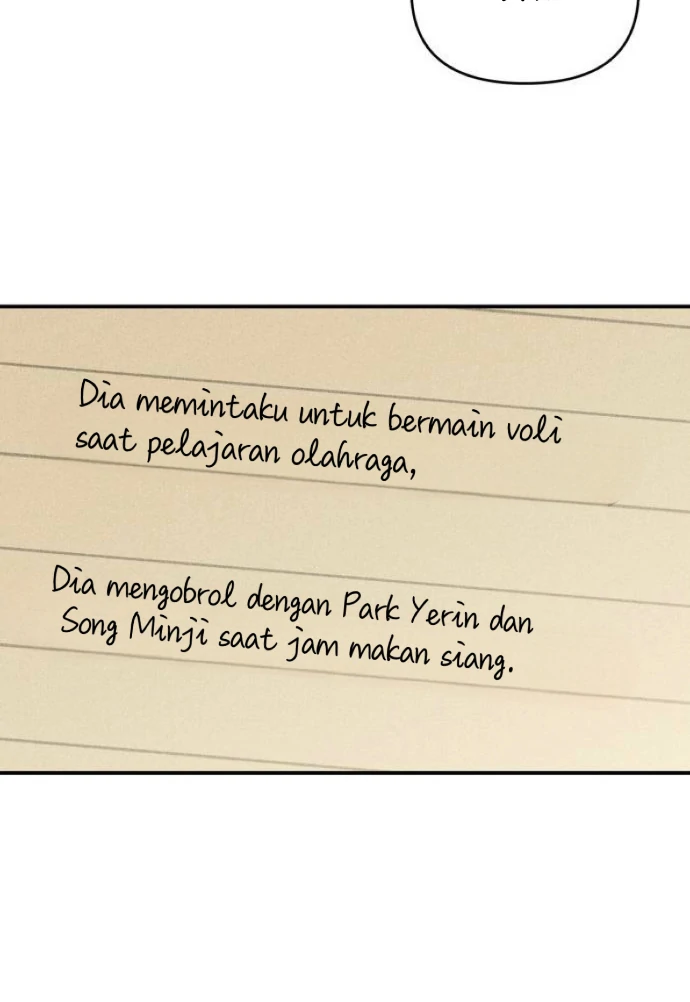 Dia memintaku untuk bermain voli
saat pelajaran olahraga,
Dia mengobrol dengan Park Yerin dan
Song Minji saat jam makan siang.